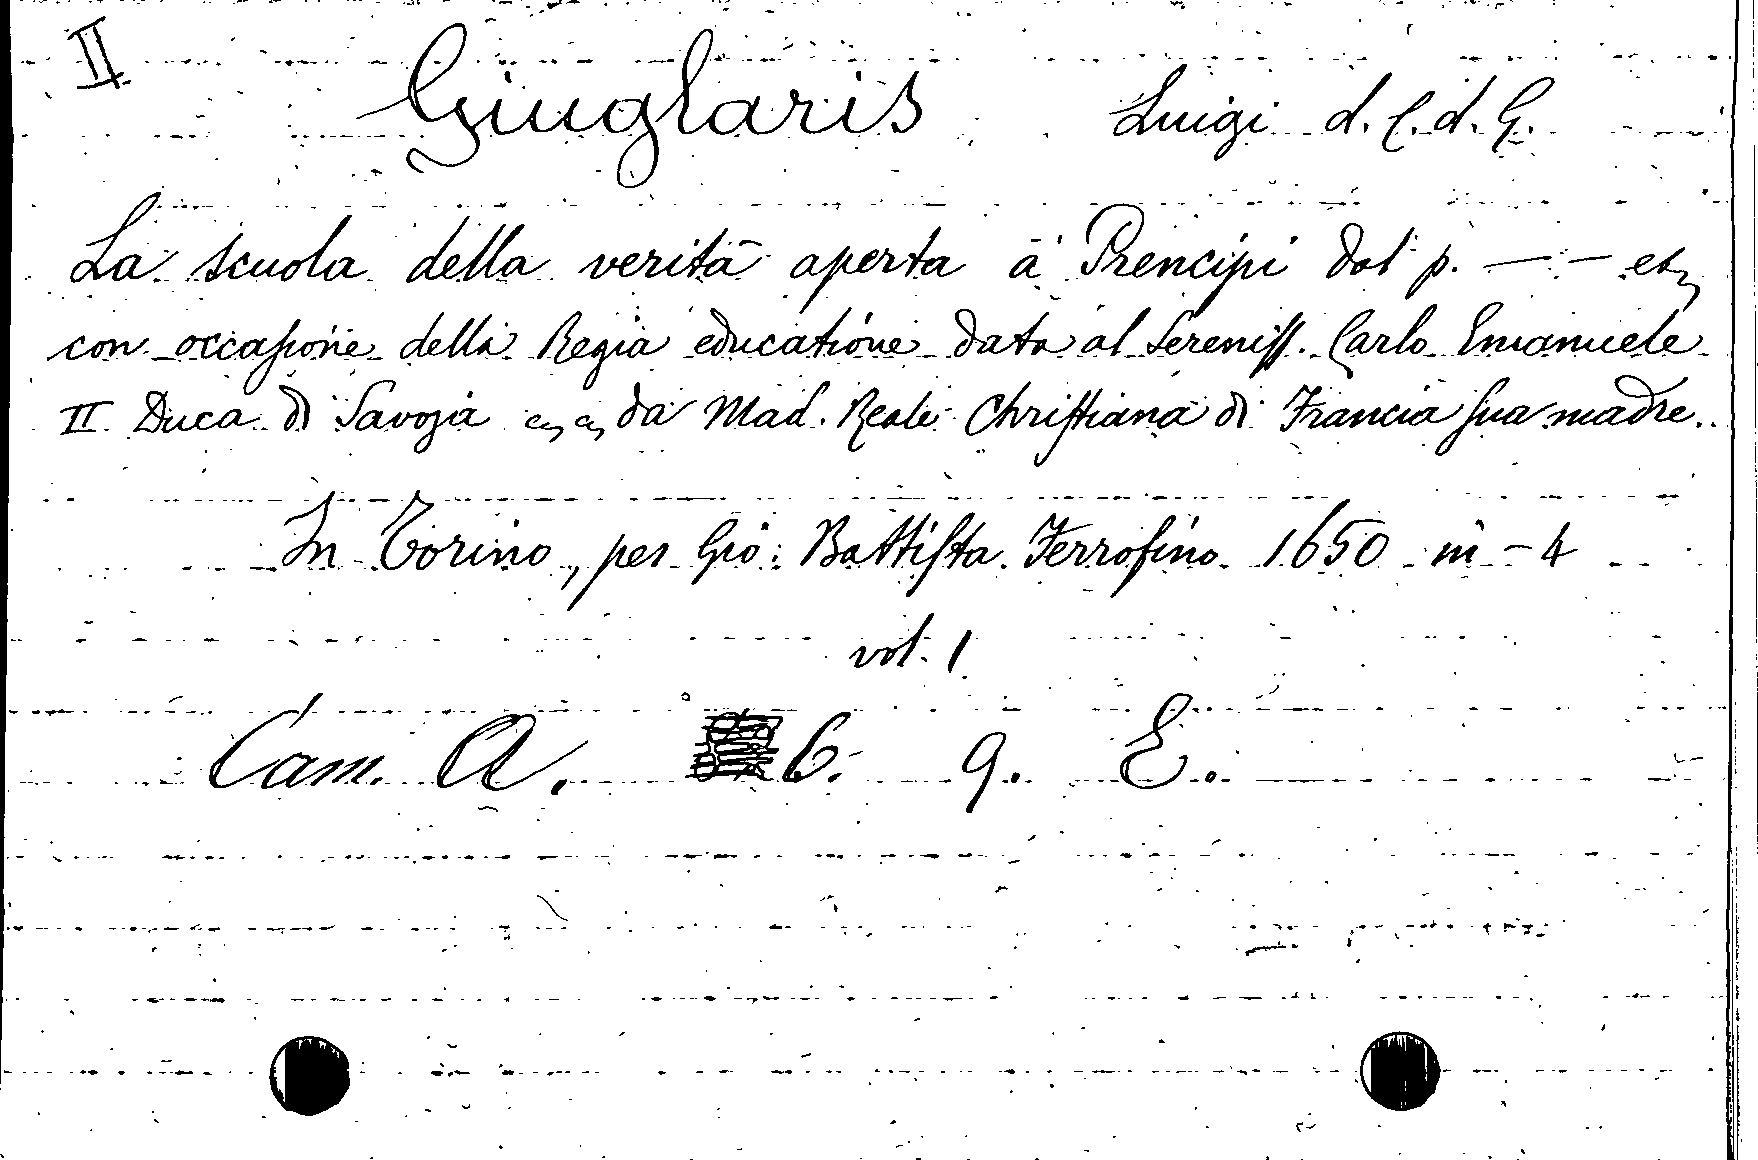 II
Giuglaris Luigi d. C. d. G.
La scuola della verità aperta à Prencipi dal p. — — etc
con occasione della Regia educatione data al Sereniss. Carlo Emanuele
II Duca di Savoja da Mad. Reale Christiana di Francia sua madre.
In Torino, per Gio: Battista Ferrofino 1650 in-4
vol. 1
Cam. A. 6. 9. E.